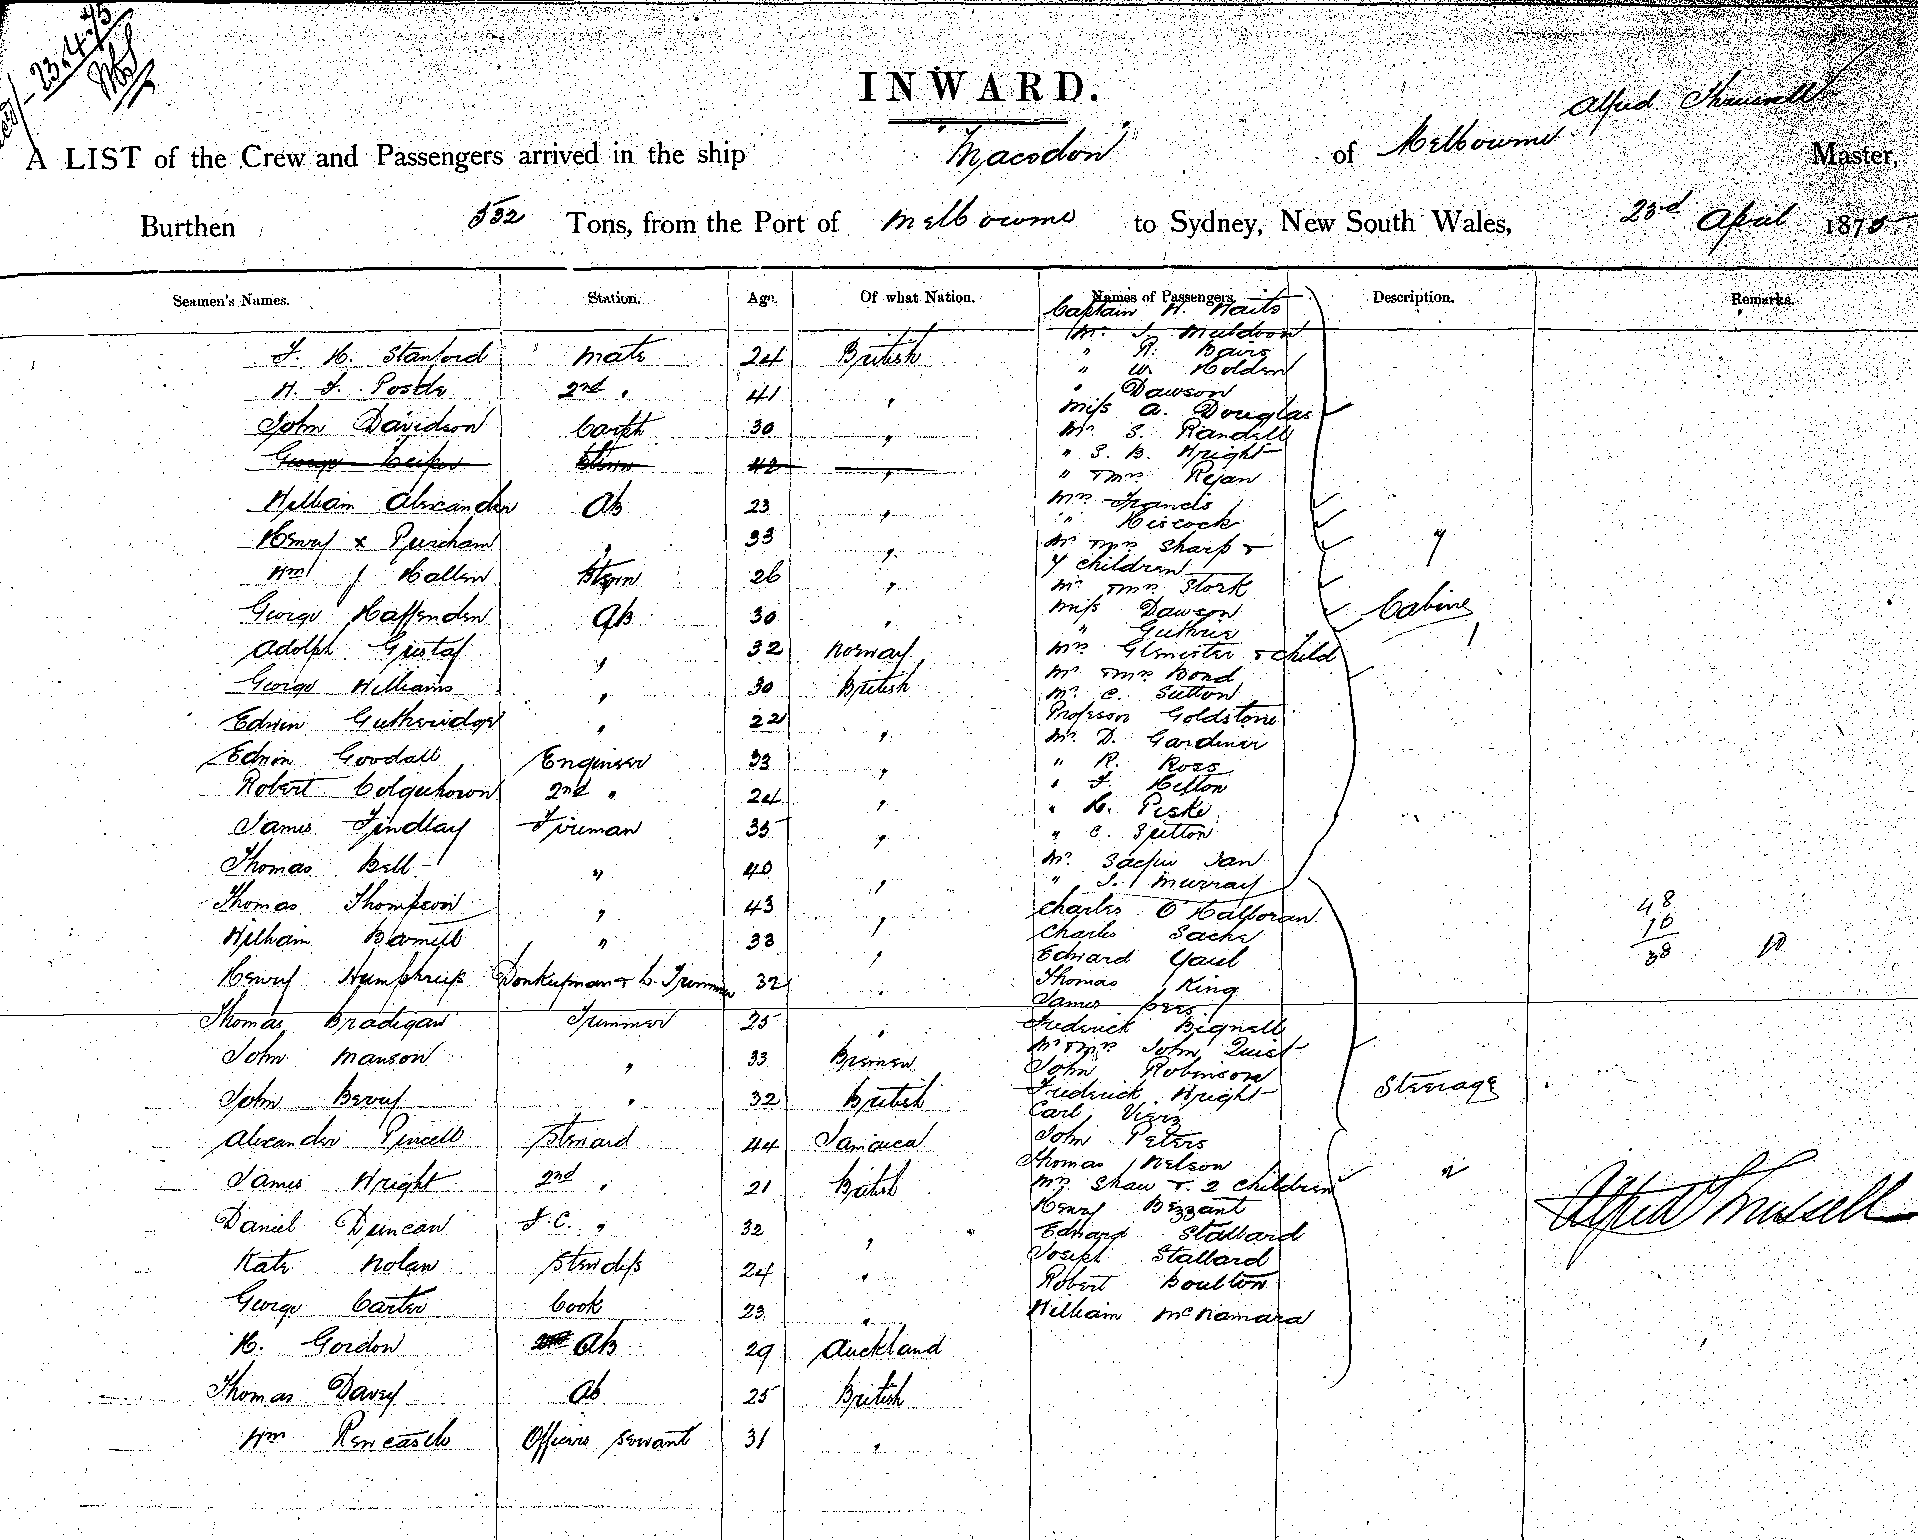 23.4.75
INWARD.
Alfred
A LIST of the Crew and Passengers arrived in the ship "Macedon" of Melbourne Master,
Burthen 532 Tons, from the Port of Melbourne to Sydney, New South Wales, 23rd April 1875
Seamen's Names. Station. Age. Of what Nation. Names of Passengers. Description. Remarks.
J. H. Stanford Mate 24 British
H. J. 2nd " 41 "
John Davidson Carptr 30 "
George 42 "
William Alexander AB 23 "
Henry x " 33 "
Wm J Hallen Stewn 26 "
George Haffenden AB 30 "
Adolph Gustaf " 32 Norway
George Williams " 30 British
Edwin Gutheridge " 22 "
Edwin Goodall Engineer 33 "
Robert Colquhoun 2nd " 24 "
James Findlay Fireman 35 "
Thomas Bell " 40 "
Thomas Thompson " 43 "
William " 33 "
Henry Humphreys Donkeyman & C. Trimmer 32 "
Thomas Bradigan Trimmer 25 "
John Manson " 33 Bremen
John Berry " 32 British
Alexander Pincell Steward 44 Jamaica
James Wright 2nd " 21 British
Daniel Duncan F.C. " 32 "
Kate Nolan Stewdess 24 "
George Carter Cook 23 "
H. Gordon AB 29 Auckland
Thomas Davey AB 25 British
Wm Officers Servant 31 "
Captain H. Waits
Mr. J. Muldoon
" R.
" W. Holden
" Dawson
Miss A. Douglas
Mr S. Randell
" S. B. Wright
" & Mrs Ryan
Mrs Francis
" Hiscock
Mr & Mrs Sharp &
7 children 7
Mr & Mrs Stork
Miss Dawson Cabine
" Guthrie
Mrs Glenister & child 1
Mr & Mrs Bond
Mr C. Sutton
Professor Goldstone
Mr. D. Gardiner
" R. Ross
" J. Hilton
" H. Peske
" C. Spitton
Mr.
" J. Murray
Charles O'Halloran 48
Charles Sachs 10
Edward Gaul 38 10
Thomas King
James
Frederick Bignell
Mr & Mrs John Quist
John Robinson
Frederick Wright Steerage
Carl
John Peters
Thomas Nelson
Mrs Shaw & 2 children 2
Henry Bezzant
Edward Stallard
Joseph Stallard
Robert Boulton
William McNamara
Alfred Trussell